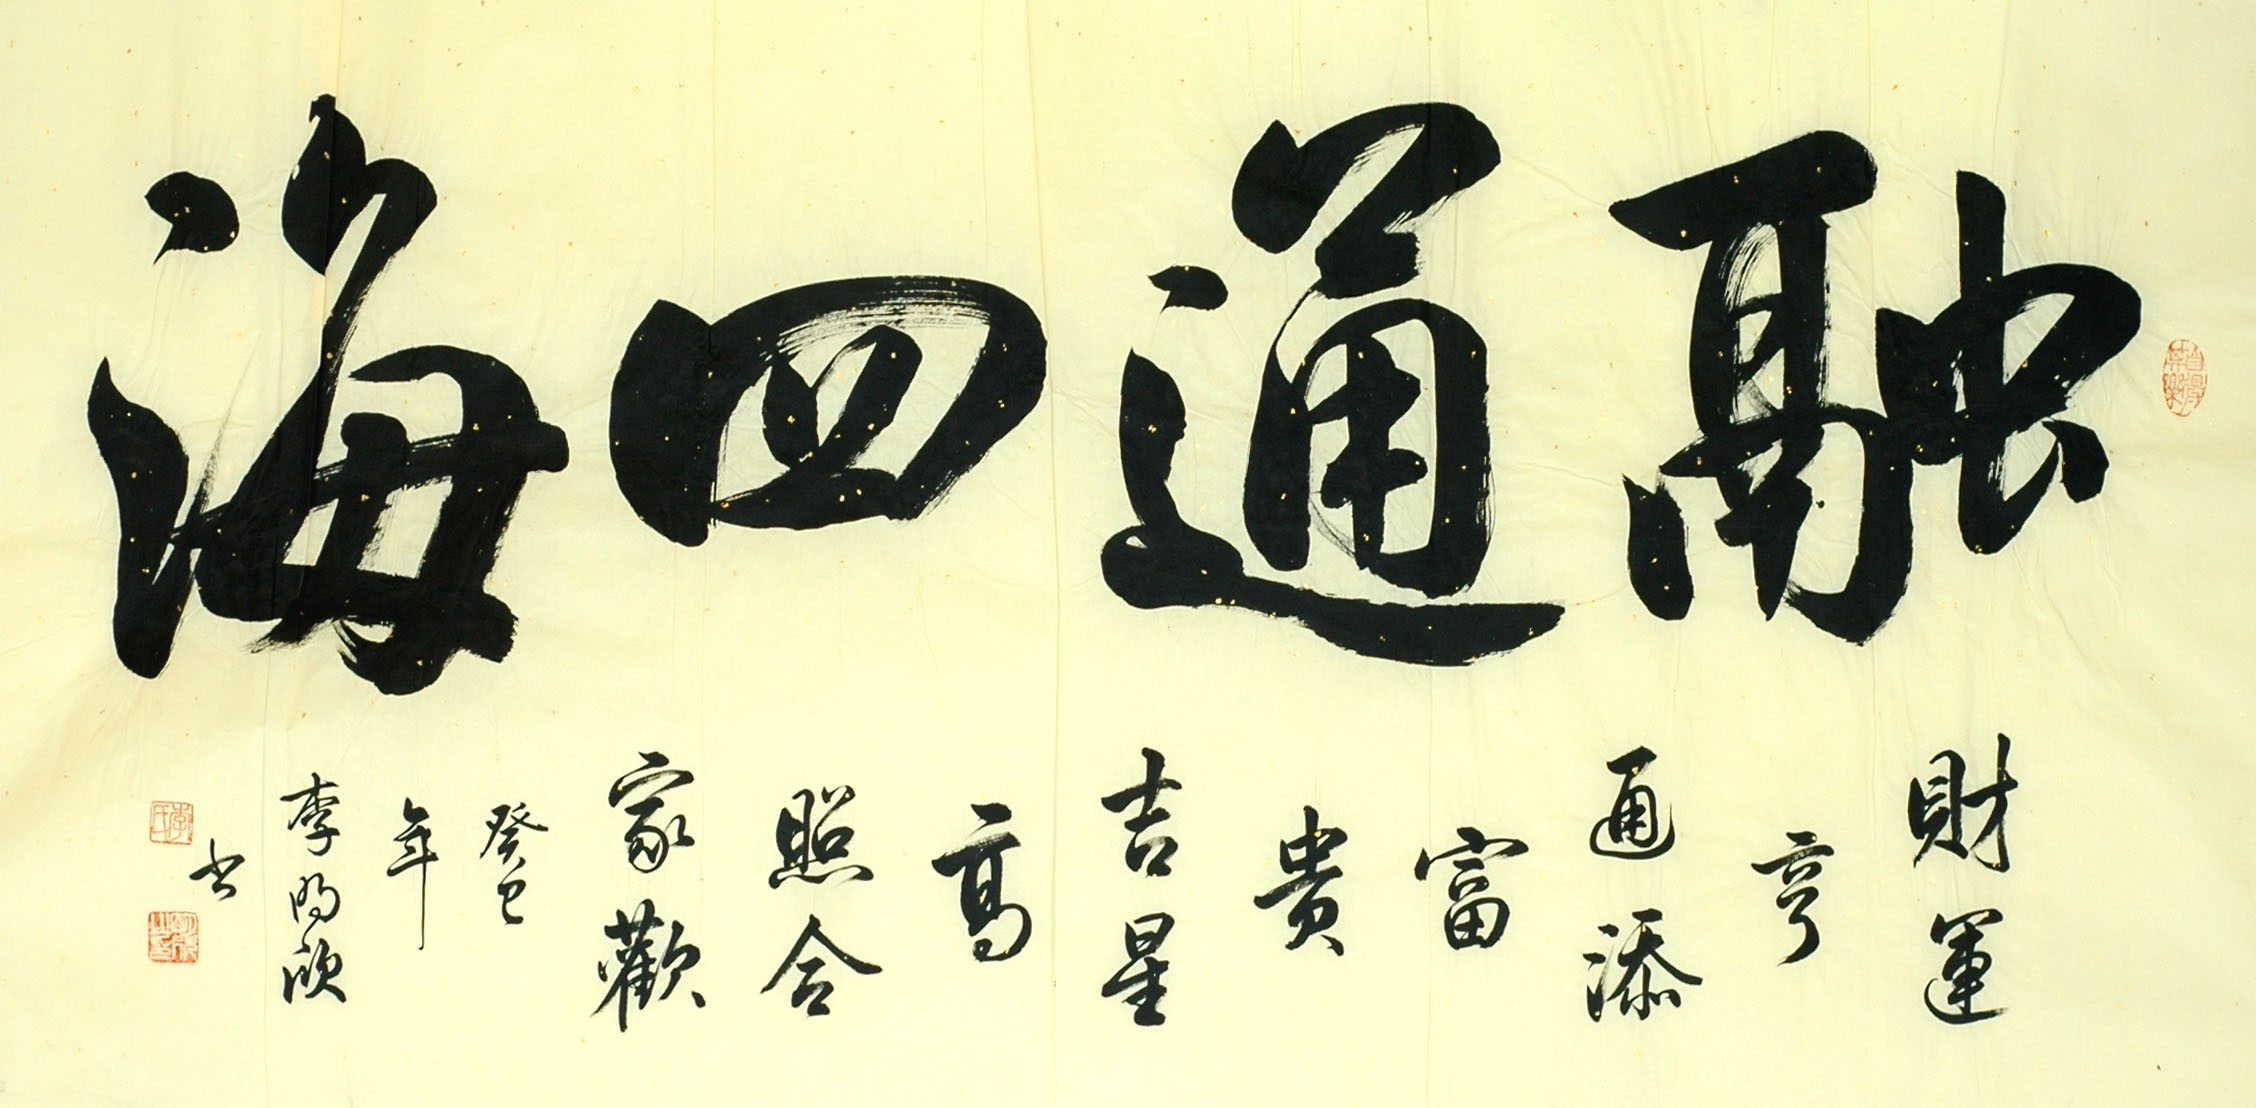 融通四海
財運
亨
通添
富
貴
吉星
高
照合
家歡
癸巳
年
李明欣
书
李氏